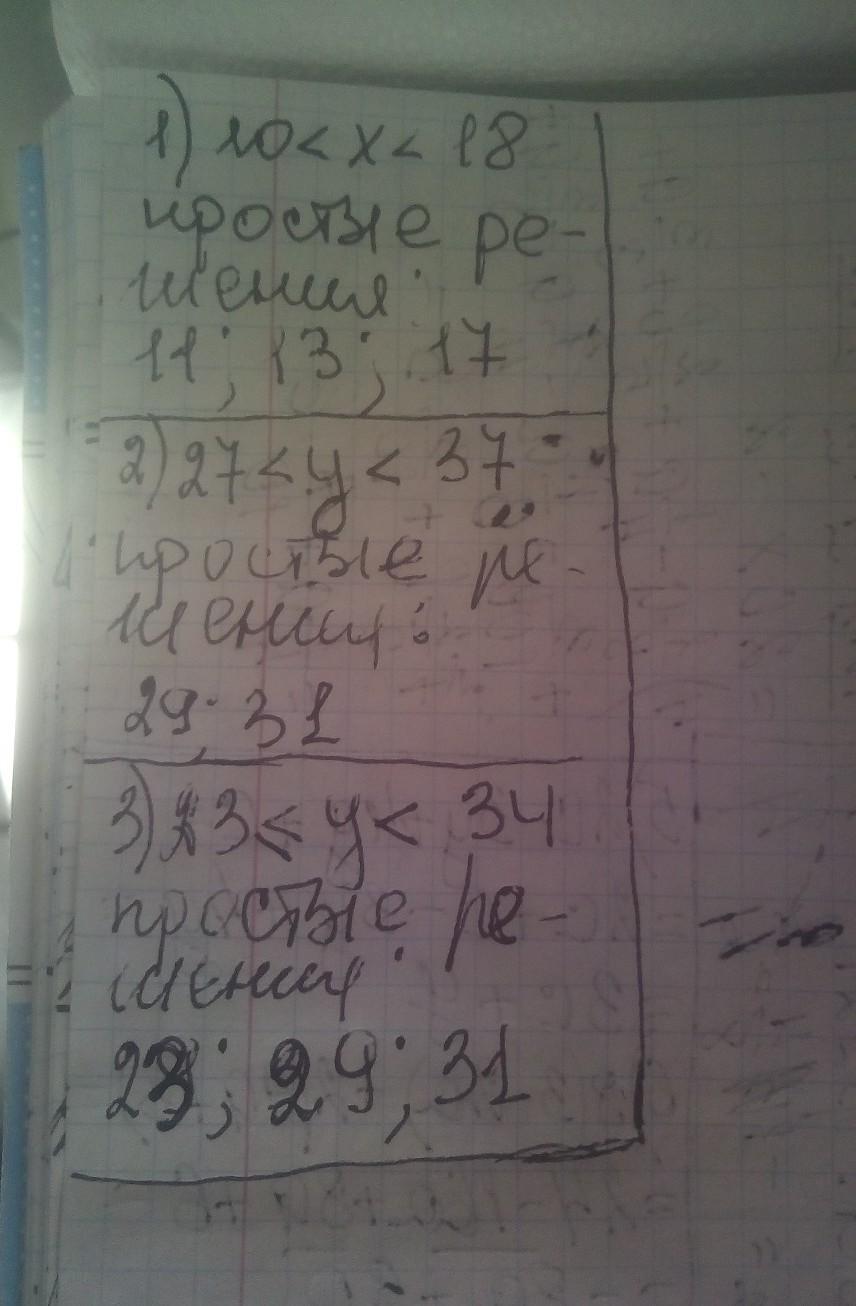 1) 10 < x < 18
простые ре-
шения:
11; 13; 17
2) 27 < y < 37
простые ре-
шения:
29; 31
3) 23 ≤ y < 34
простые ре-
шения:
23; 29; 31